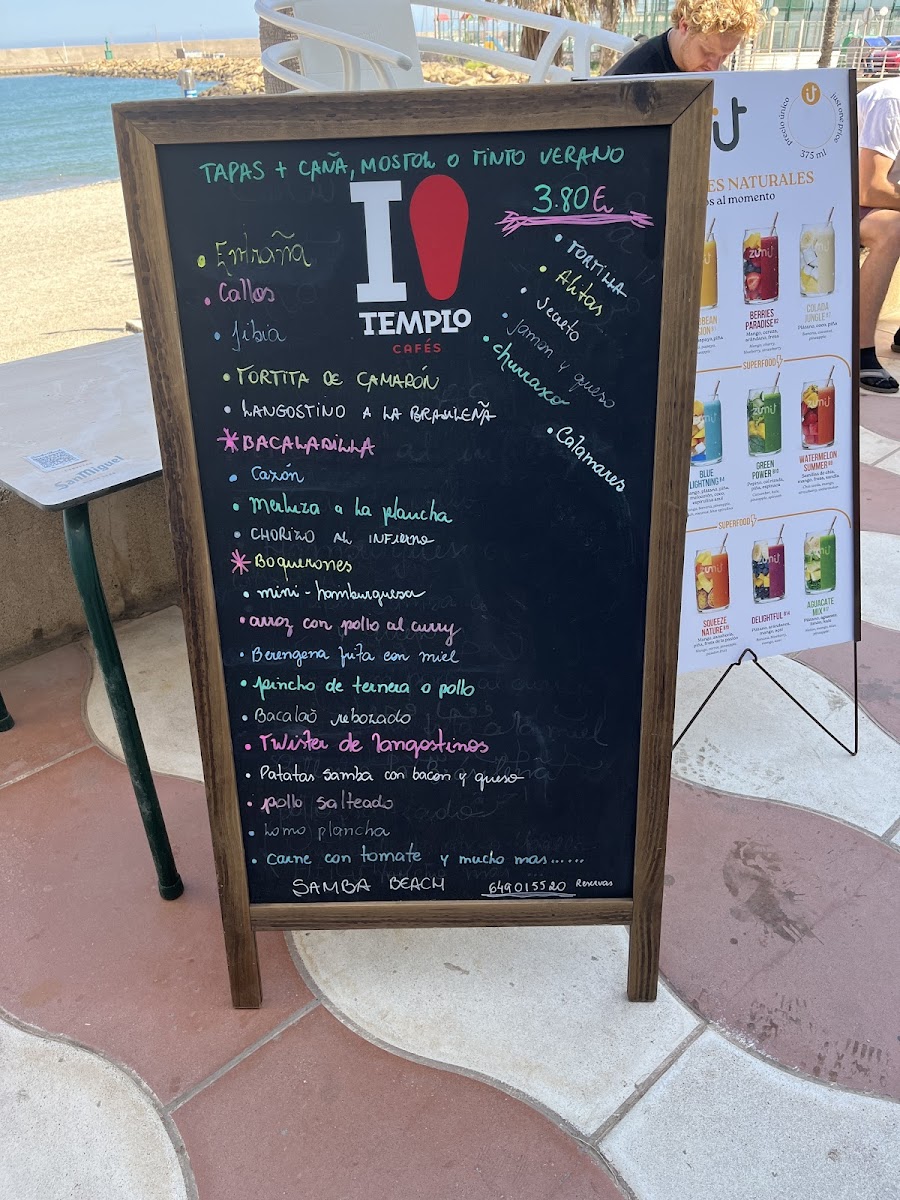 TAPAS + CAÑA, MOSTOL O TINTO VERANO
3.80€
I
TEMPLO
CAFÉS
• Entraña
• Callos
• Jibia
• TORTITA DE CAMARÓN
• LANGOSTINO A LA BRASILEÑA
* BACALADILLA
• Cazón
• Merluza a la plancha
• CHORIZO AL INFIERNO
* Boquerones
• mini-hamburguesa
• arroz con pollo al curry
• Berengena frita con miel
• pincho de ternera o pollo
• Bacalao rebozado
• Twister de langostinos
• Patatas samba con bacon y queso
• pollo salteado
• Lomo plancha
• carne con tomate y mucho mas......
SAMBA BEACH 649015520 Reservas
• TORTILLA
• Alitas
• Secreto
• Jamon y queso
• churrasco
• Calamares
SanMiguel
precio único
just one price
375 ml
ES NATURALES
os al momento
BERRIES PARADISE
COLADA JUNGLE
SUPERFOOD
BLUE LIGHTNING
GREEN POWER
WATERMELON SUMMER
SUPERFOOD
SQUEEZE NATURE
DELIGHTFUL
AGUACATE MIX